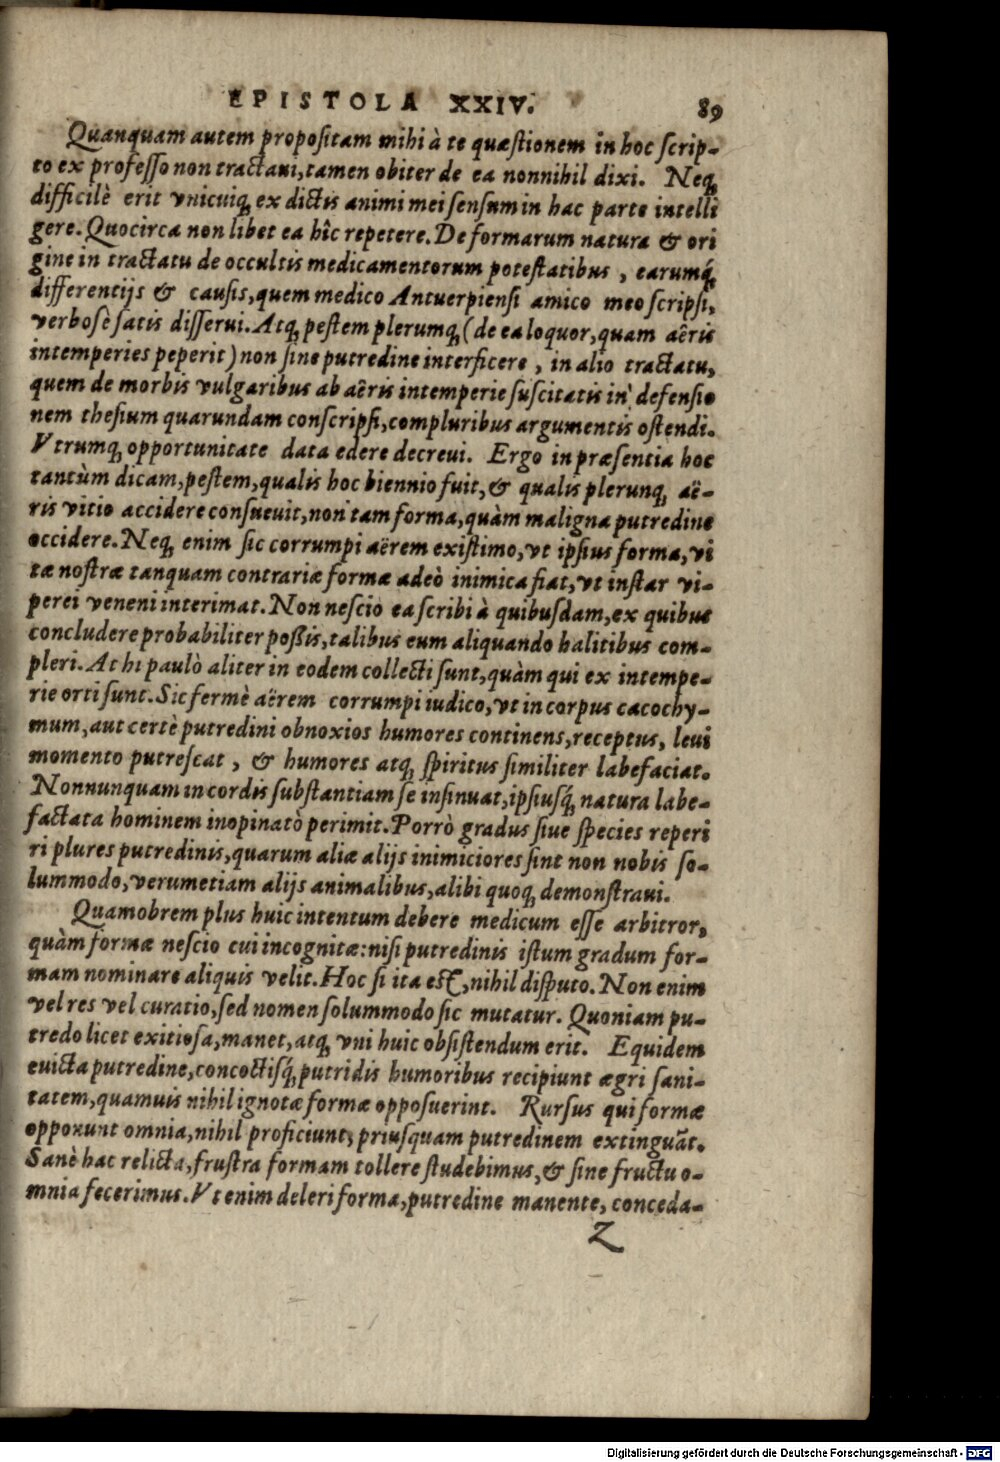 EPISTOLA XXIV. 89
Quanquam autem propositam mihi à te quæstionem in hoc scrip-
to ex professo non tractaui, tamen obiter de ea nonnihil dixi. Neq;
difficilè erit vnicuiq; ex dictis animi mei sensum in hac parte intelli
gere. Quocirca non libet ea hîc repetere. De formarum natura & ori
gine in tractatu de occultis medicamentorum potestatibus, earumq́;
differentijs & causis, quem medico Antuerpiensi amico meo scripsi,
verbosè satis disserui. Atq; pestem plerumq; (de ea loquor, quam aëris
intemperies peperit) non sine putredine interficere, in alio tractatu,
quem de morbis vulgaribus ab aëris intemperie suscitatis in defensio
nem thesium quarundam conscripsi, compluribus argumentis ostendi.
Vtrumq; opportunitate data edere decreui. Ergo in præsentia hoc
tantùm dicam, pestem, qualis hoc biennio fuit, & qualis plerunq; aë-
ris vitio accidere consueuit, non tam forma, quàm maligna putredine
occidere. Neq; enim sic corrumpi aërem existimo, vt ipsius forma, vi
tæ nostræ tanquam contrariæ formæ adeò inimica fiat, vt instar vi-
perei veneni interimat. Non nescio ea scribi à quibusdam, ex quibus
concludere probabiliter poßis, talibus eum aliquando halitibus com-
pleri. At hi paulò aliter in eodem collecti sunt, quàm qui ex intempe-
rie orti sunt. Sic fermè aërem corrumpi iudico, vt in corpus cacochy-
mum, aut certè putredini obnoxios humores continens, receptus, leui
momento putrescat, & humores atq; spiritus similiter labefaciat.
Nonnunquam in cordis substantiam se insinuat, ipsiusq́; natura labe-
factata hominem inopinatò perimit. Porrò gradus siue species reperi
ri plures putredinis, quarum aliæ alijs inimiciores sint non nobis so-
lummodo, verumetiam alijs animalibus, alibi quoq; demonstraui.
Quamobrem plus huic intentum debere medicum esse arbitror,
quàm formæ nescio cui incognitæ: nisi putredinis istum gradum for-
mam nominare aliquis velit. Hoc si ita est, nihil disputo. Non enim
vel res vel curatio, sed nomen solummodo sic mutatur. Quoniam pu-
tredo licet exitiosa, manet, atq; vni huic obsistendum erit. Equidem
euicta putredine, concoctisq́; putridis humoribus recipiunt ægri sani-
tatem, quamuis nihil ignotæ formæ opposuerint. Rursus qui formæ
opponunt omnia, nihil proficiunt, priusquam putredinem extinguāt.
Sanè hac relicta, frustra formam tollere studebimus, & sine fructu o-
mnia fecerimus. Vt enim deleri forma, putredine manente, conceda-
Z
Digitalisierung gefördert durch die Deutsche Forschungsgemeinschaft - DFG